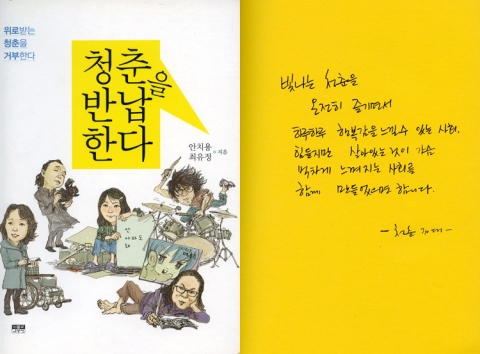 위로받는
청춘을
거부한다
청춘을
반납
한다
안치용
최유정 지음
빛나는 청춘을
온전히 즐기면서
하루하루 행복감을 느낄 수 있는 사회.
힘들지만 살아있는 것이 가슴
벅차게 느껴지는 사회를
함께 만들었으면 합니다.